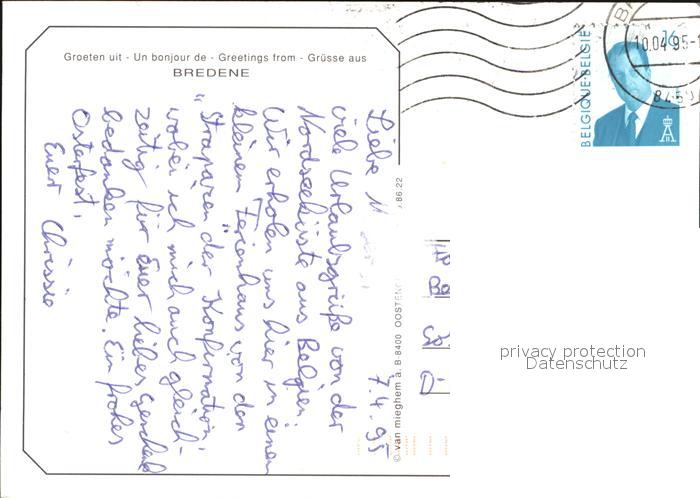 Groeten uit - Un bonjour de - Greetings from - Grüsse aus
BREDENE
7.4.95
Liebe M
viele Urlaubsgrüße von der
Nordseeküste aus Belgien!
Wir erholen uns hier in einem
kleinem Ferienhaus von den
"Strapazen der Konfirmation",
wobei ich mich auch gleich-
zeitig für Euer liebes Geschenk
bedanken möchte. Ein frohes
Osterfest,
Euer Chrissie
© van mieghem a. B-8400 OOSTEND
.86.22
BELGIQUE-BELGIË
16
10.04.95-1
privacy protection
Datenschutz